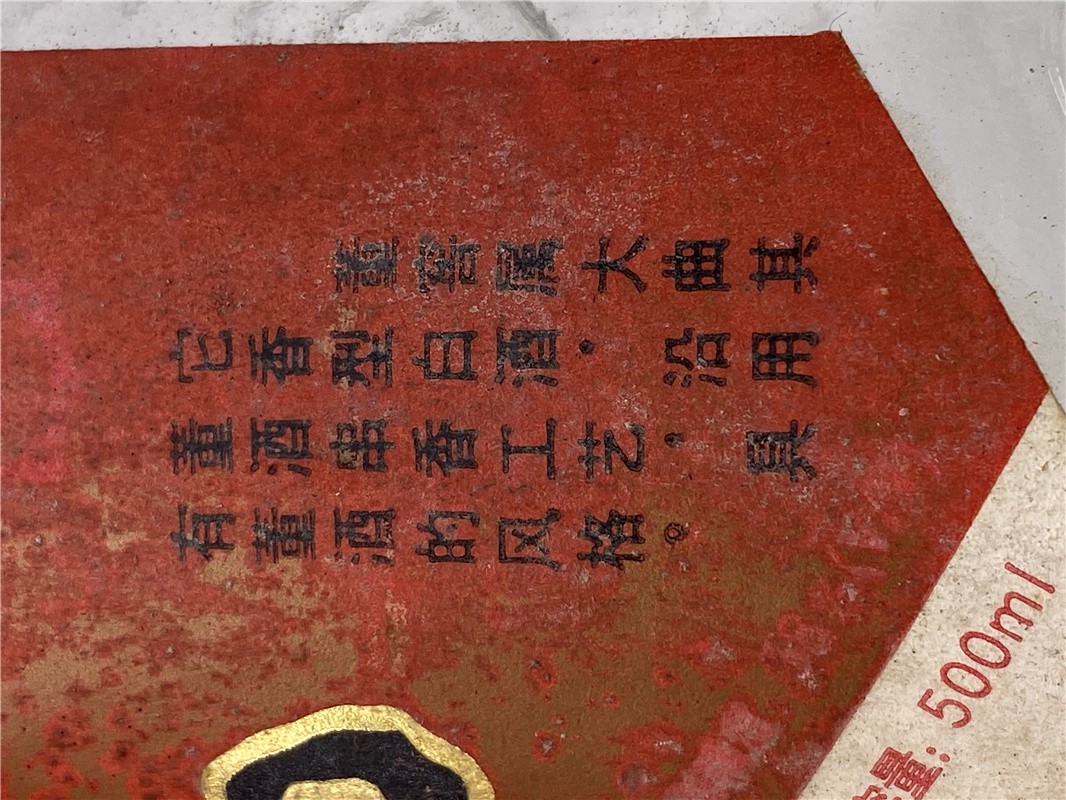 董窖属大曲其
它香型白酒·沿用
董酒串香工艺,具
有董酒的风格。
量: 500ml